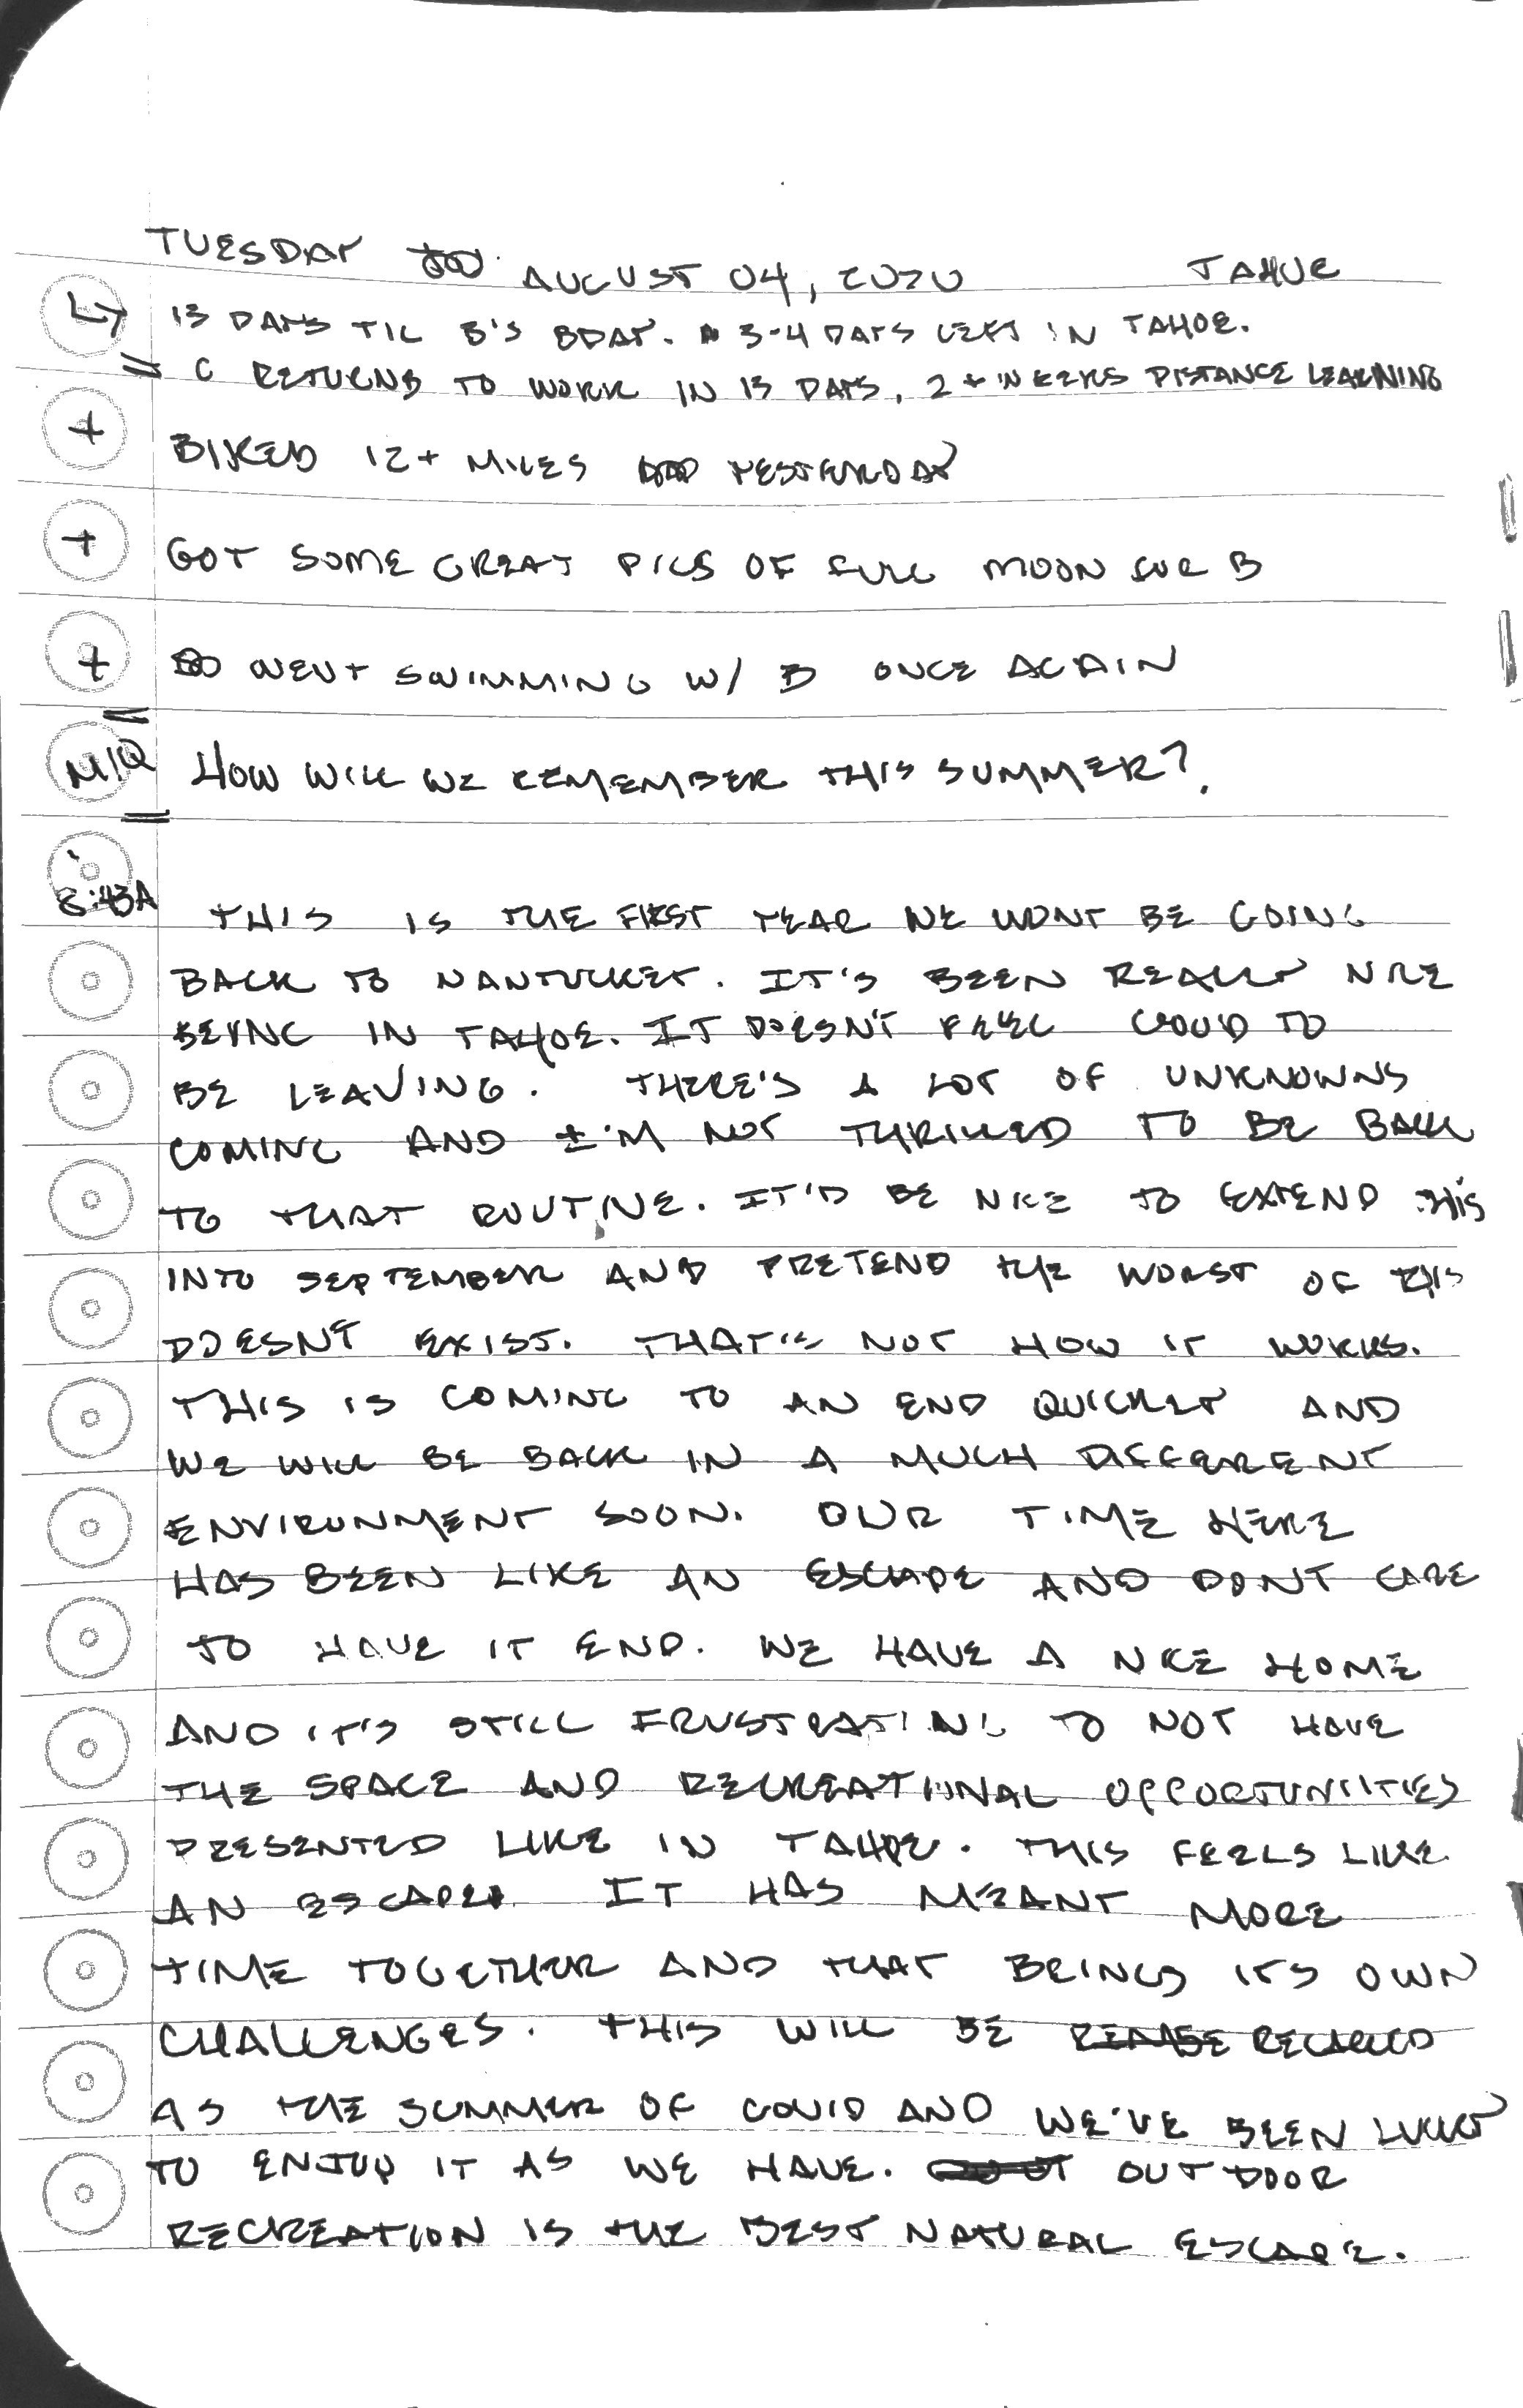 TUESDAY AUGUST 04, 2020 TAHOE
↳ 13 DAYS TIL B'S BDAY. 3-4 DAYS LEFT IN TAHOE.
= C RETURNS TO WORK IN 13 DAYS, 2+ WEEKS DISTANCE LEARNING
+ BIKED 12+ MILES YESTERDAY
+ GOT SOME GREAT PICS OF FULL MOON FOR B
+ WENT SWIMMING W/ B ONCE AGAIN
M/Q HOW WILL WE REMEMBER THIS SUMMER?
8:43A THIS IS THE FIRST YEAR WE WONT BE GOING
BACK TO NANTUCKET. IT'S BEEN REALLY NICE
BEING IN TAHOE. IT DOESN'T FEEL GOOD TO
BE LEAVING. THERE'S A LOT OF UNKNOWNS
COMING AND I'M NOT THRILLED TO BE BACK
TO THAT ROUTINE. IT'D BE NICE TO EXTEND THIS
INTO SEPTEMBER AND PRETEND THE WORST OF THIS
DOESN'T EXIST. THAT'S NOT HOW IT WORKS.
THIS IS COMING TO AN END QUICKLY AND
WE WILL BE BACK IN A MUCH DIFFERENT
ENVIRONMENT SOON. OUR TIME HERE
HAS BEEN LIKE AN ESCAPE AND DONT CARE
TO HAVE IT END. WE HAVE A NICE HOME
AND IT'S STILL FRUSTRATING TO NOT HAVE
THE SPACE AND RECREATIONAL OPPORTUNITIES
PRESENTED LIKE IN TAHOE. THIS FEELS LIKE
AN ESCAPE. IT HAS MEANT MORE
TIME TOGETHER AND THAT BRINGS ITS OWN
CHALLENGES. THIS WILL BE
AS THE SUMMER OF COVID AND WE'VE BEEN LUCKY
TO ENJOY IT AS WE HAVE. OUTDOOR
RECREATION IS THE BEST NATURAL ESCAPE.